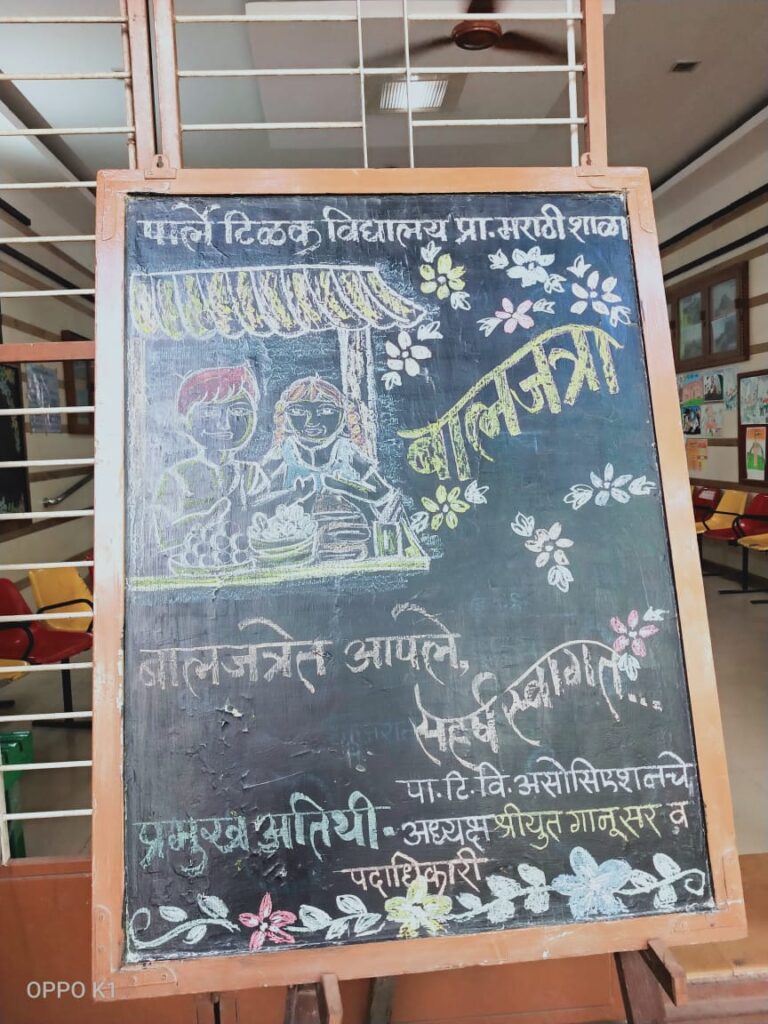 पार्ले टिळक विद्यालय प्रा. मराठी शाळा
बालजत्रा
बालजत्रेत आपले,
सहर्ष स्वागत...
पा. टि. वि. असोसिएशनचे
प्रमुख अतिथी - अध्यक्ष श्रीयुत गानू सर व
पदाधिकारी
OPPO K1